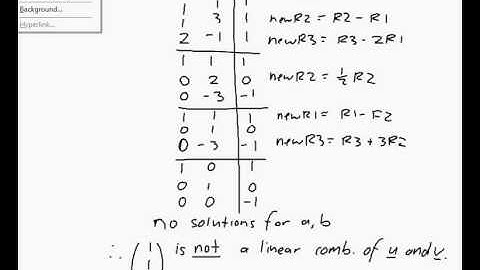 Background...
Hyperlink...
1 1 1
1 3 1 newR2 = R2 - R1
2 -1 1 newR3 = R3 - 2R1
1 1 1
0 2 0 newR2 = 1/2 R2
0 -3 -1
1 1 1 newR1 = R1 - R2
0 1 0
0 -3 -1 newR3 = R3 + 3R2
1 0 1
0 1 0
0 0 -1
no solutions for a, b
∴ (1 is not a linear comb. of u and v.
1